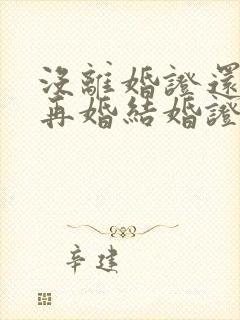 沒離婚證還
再婚結婚證
辛建